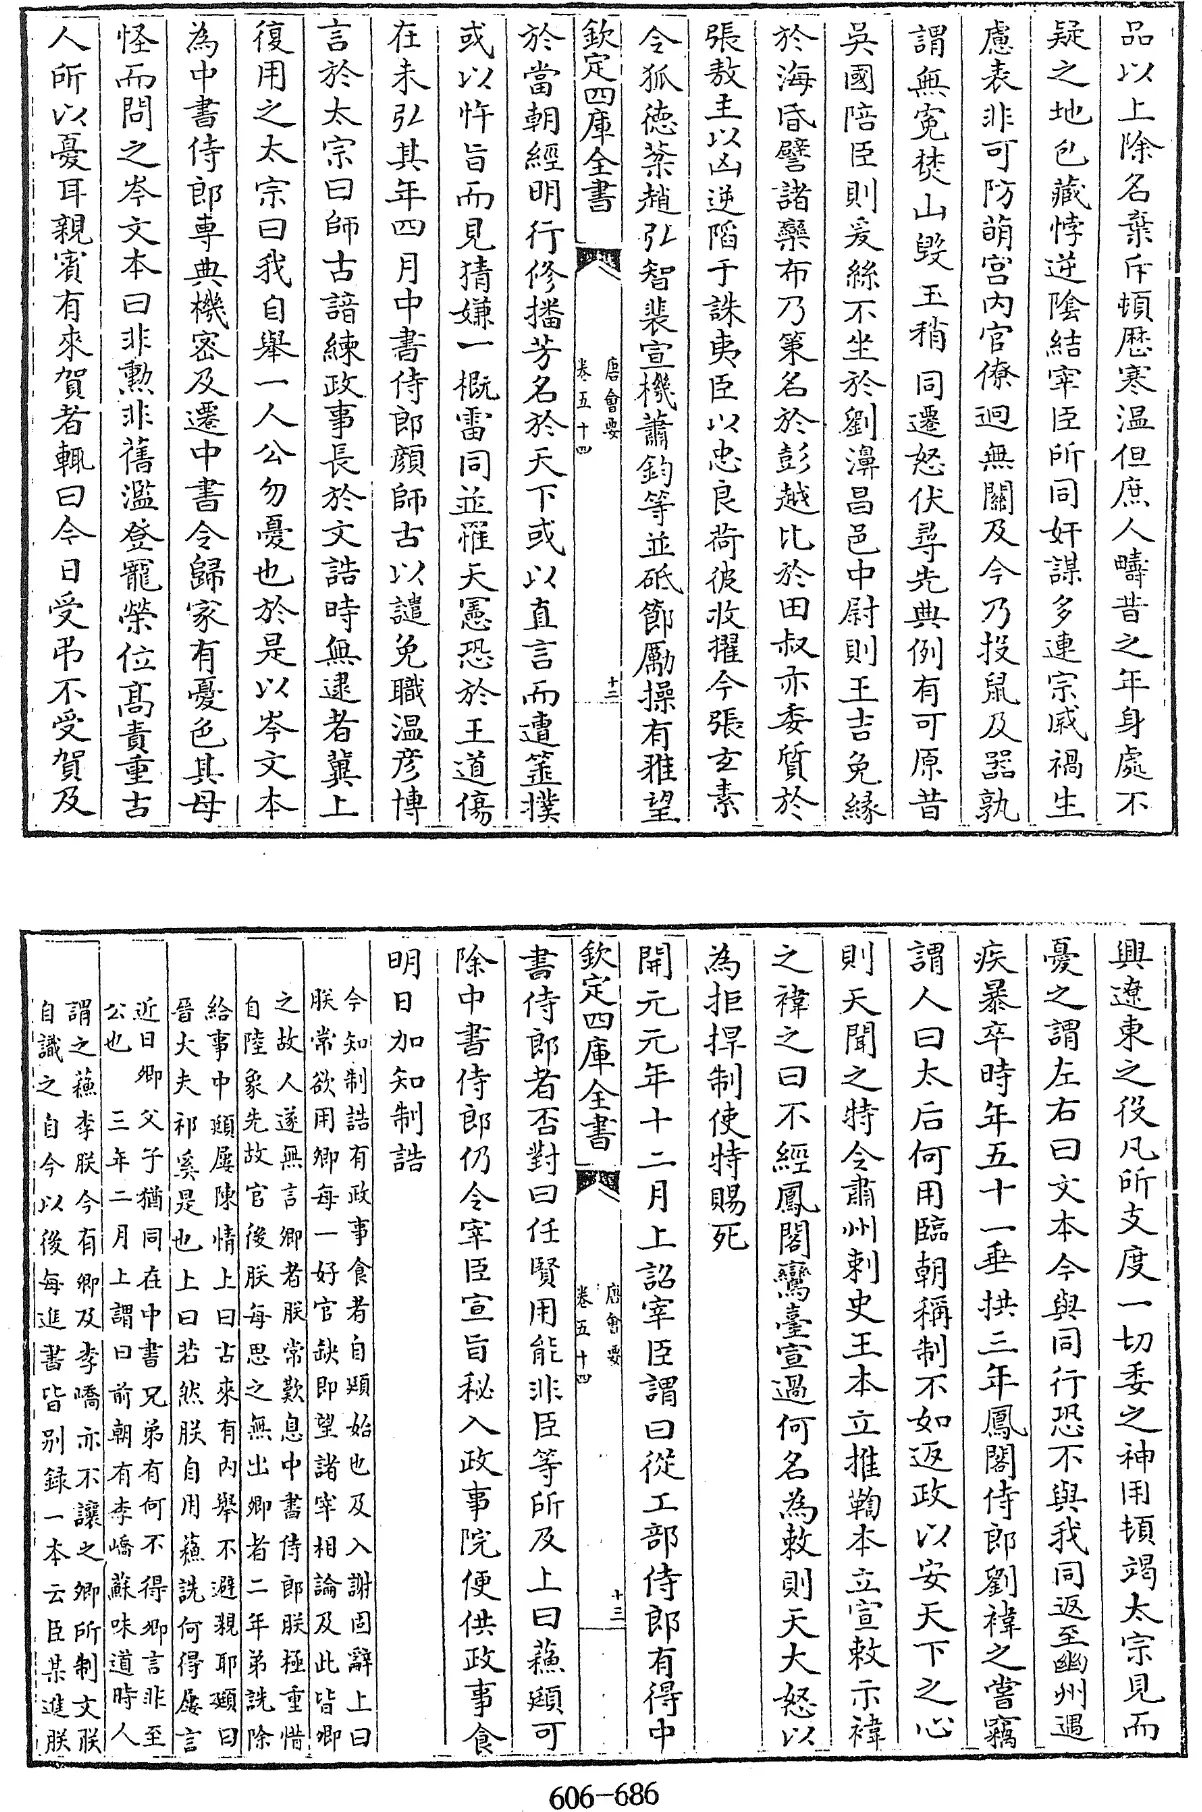 品以上除名棄斥頓歷寒溫但庶人疇昔之年身處不
疑之地包藏悖逆陰結宰臣所同奸謀多連宗戚禍生
慮表非可防萌宫内官僚迥無關及今乃投鼠及器孰
謂無寃焚山毁玉稍同遷怒伏尋先典例有可原昔
吳國陪臣則爰絲不坐於劉濞昌邑中尉則王吉免緣
於海昏譬諸欒布乃策名於彭越比於田叔亦委質於
張敖主以凶逆陷于誅夷臣以忠良荷彼收擢今張玄素
令狐德棻趙弘智裴宣機蕭鈞等並砥節勵操有雅望
欽定四庫全書
唐會要
卷五十四
十二
於當朝經明行修播芳名於天下或以直言而遭箠撲
或以忤旨而見猜嫌一概雷同並罹天憲恐於王道傷
在未弘其年四月中書侍郎顔師古以譴免職温彦博
言於太宗曰師古諳練政事長於文誥時無逮者冀上
復用之太宗曰我自舉一人公勿憂也於是以岑文本
為中書侍郎專典機密及遷中書令歸家有憂色其母
怪而問之岑文本曰非勲非舊濫登寵榮位髙責重古
人所以憂耳親賓有來賀者輒曰今日受弔不受賀及
興遼東之役凡所支度一切委之神用頓竭太宗見而
憂之謂左右曰文本今與同行恐不與我同返至幽州遇
疾暴卒時年五十一垂拱三年鳳閣侍郎劉禕之嘗竊
謂人曰太后何用臨朝稱制不如返政以安天下之心
則天聞之特令肅州刺史王本立推鞫本立宣敕示禕
之禕之曰不經鳳閣鸞臺宣過何名為敕則天大怒以
為拒捍制使特賜死
開元元年十二月上詔宰臣謂曰從工部侍郎有得中
欽定四庫全書
唐會要
卷五十四
十三
書侍郎者否對曰任賢用能非臣等所及上曰蘇頲可
除中書侍郎仍令宰臣宣旨秘入政事院便供政事食
明日加知制誥
今知制誥有政事食者自頲始也及入謝固辭上曰
朕常欲用卿每一好官缺即望諸宰相論及此皆卿
之故人遂無言卿者朕常歎息中書侍郎朕極重惜
自陸象先故官後朕每思之無出卿者二年弟詵除
給事中頲屢陳情上曰古來有内舉不避親耶頲曰
晉大夫祁奚是也上曰若然朕自用蘇詵何得屢言
近日卿父子猶同在中書兄弟有何不得卿言非至
公也 三年二月上謂曰前朝有李嶠蘇味道時人
謂之蘇李朕今有卿及李嶠亦不讓之卿所制文朕
自識之自今以後每進書皆别録一本云臣某進朕
606-686